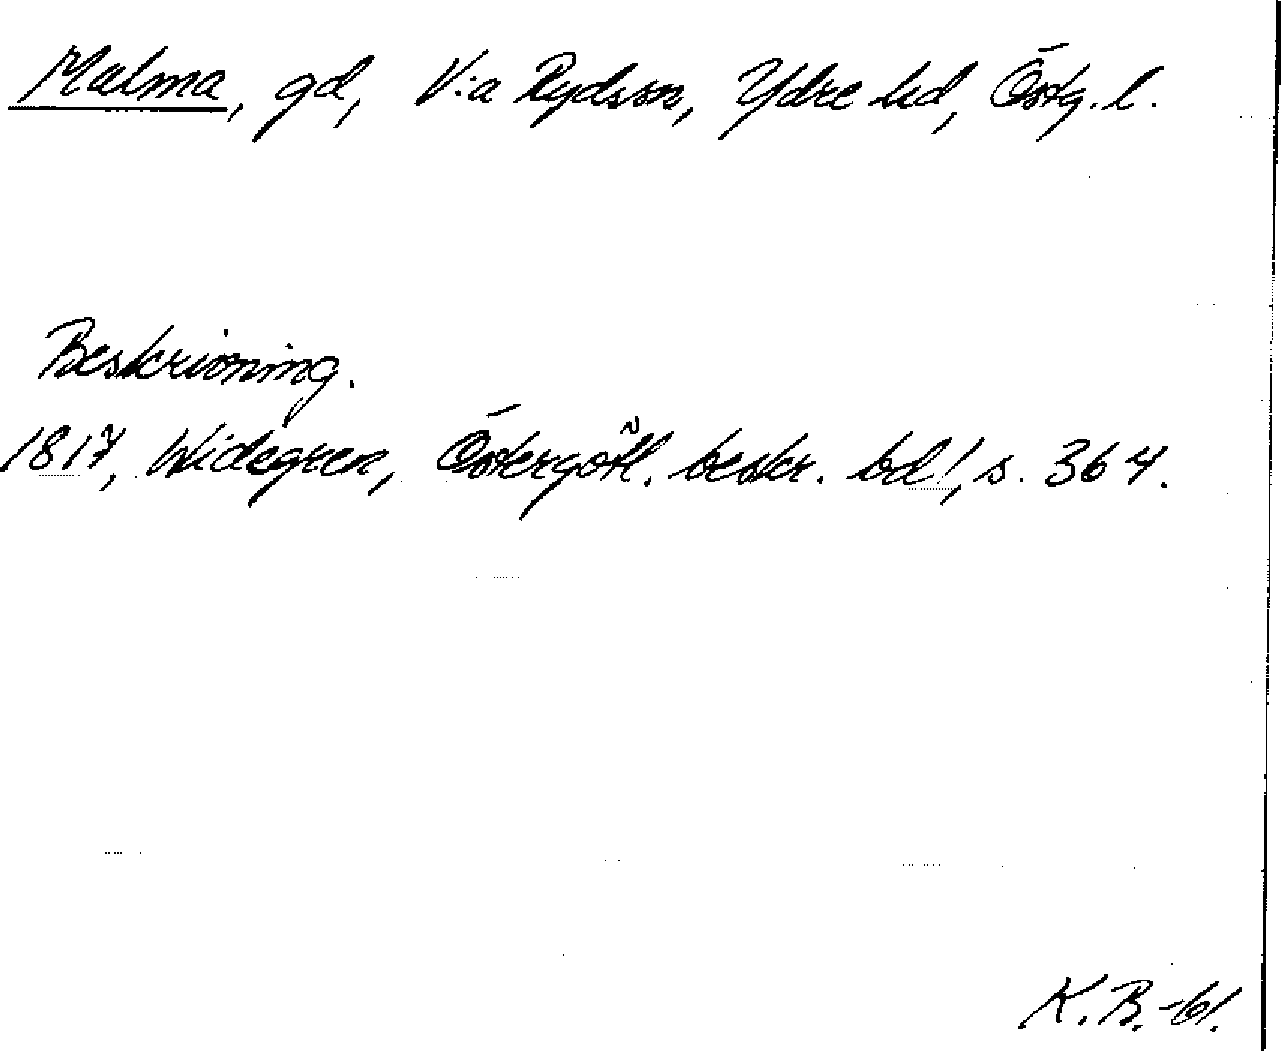 Malma, gd, V:a Ryd sn, Ydre hd, Östg. l.
Beskrivning.
1817, Widegren, Östergötl. beskr. bd 1, s. 364.
K. B. -61.